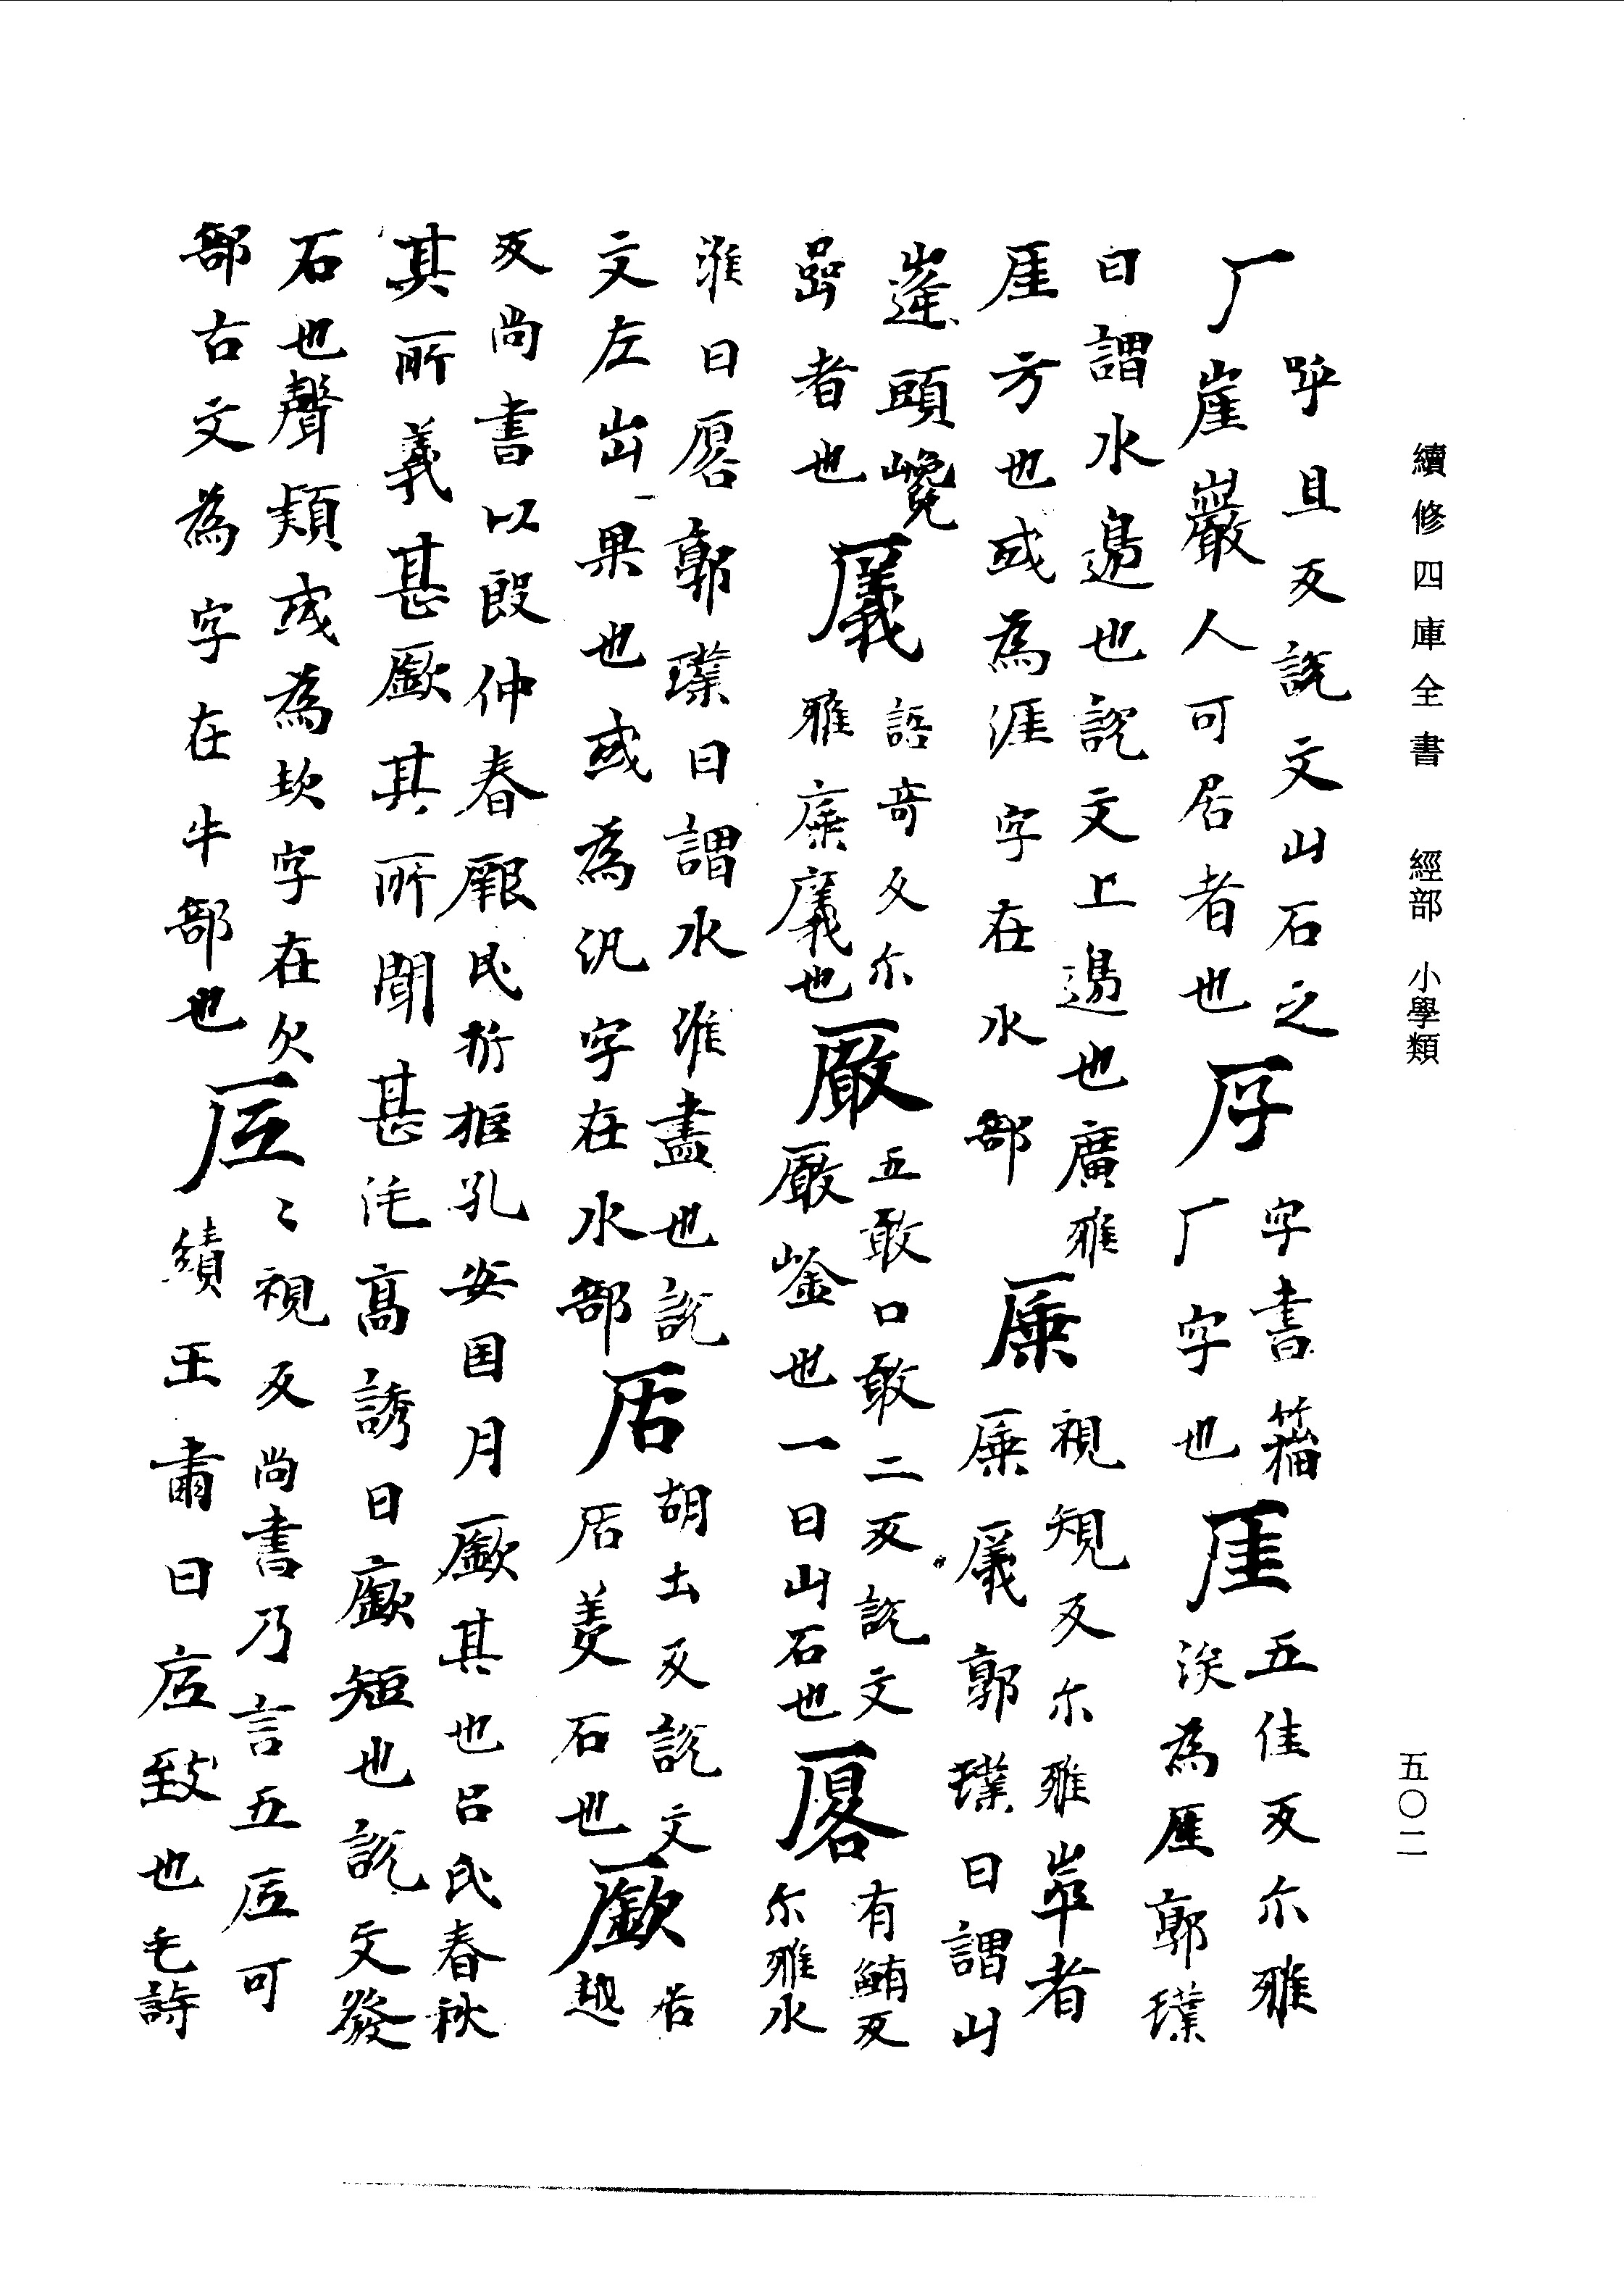 續修四庫全書 經部 小學類
五〇二
厂
呼旦反説文山石之
崖巖人可居者也
厈
字書籀
厂字也
厓
五佳反尒雅
涘為厓郭璞
曰謂水邊也説文上邊也廣雅
厓方也或為涯字在水部
厜
視規反尒雅崒者
厜㕒郭璞曰謂山
峯頭巉
嵒者也
㕒
語奇反尒
雅厜㕒也
厰
五敢口敢二反説文
厰崟也一曰山石也
厬
有鮪反
尒雅水
淮曰厬郭璞曰謂水淮盡也説
文左出一果也或為汍字在水部
㕆
胡土反説文
㕆美石也
厥
居
越
反尚書以殷仲春厥民析孔安国月厥其也吕氏春秋
其所義甚厥其所聞甚浅高誘曰厥短也説文發
石也聲類或為坎字在欠
部右文為字在牛部也
厎
之視反尚書乃言五厎可
績王肅曰厎致也毛詩